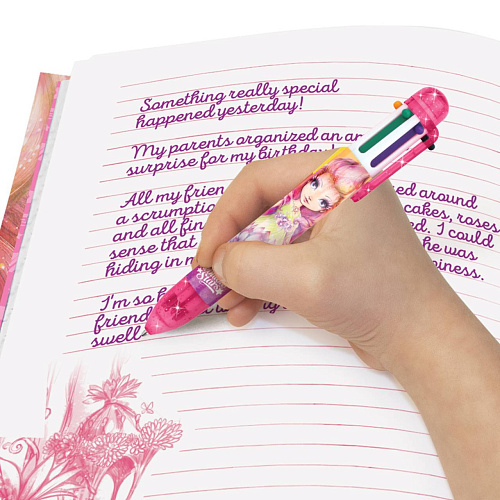 Something really special
happened yesterday!
My parents organized an
surprise for my birthday!
All my around
a scrumptio cakes, roses
and all fin I could
sense that he was
hiding in m
I'm so
friend
swell